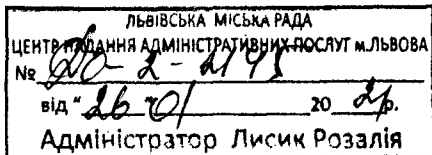 ЛЬВІВСЬКА МІСЬКА РАДА
ЦЕНТР НАДАННЯ АДМІНІСТРАТИВНИХ ПОСЛУГ м.ЛЬВОВА
№ -2-
від "26" 01 20 р.
Адміністратор Лисик Розалія